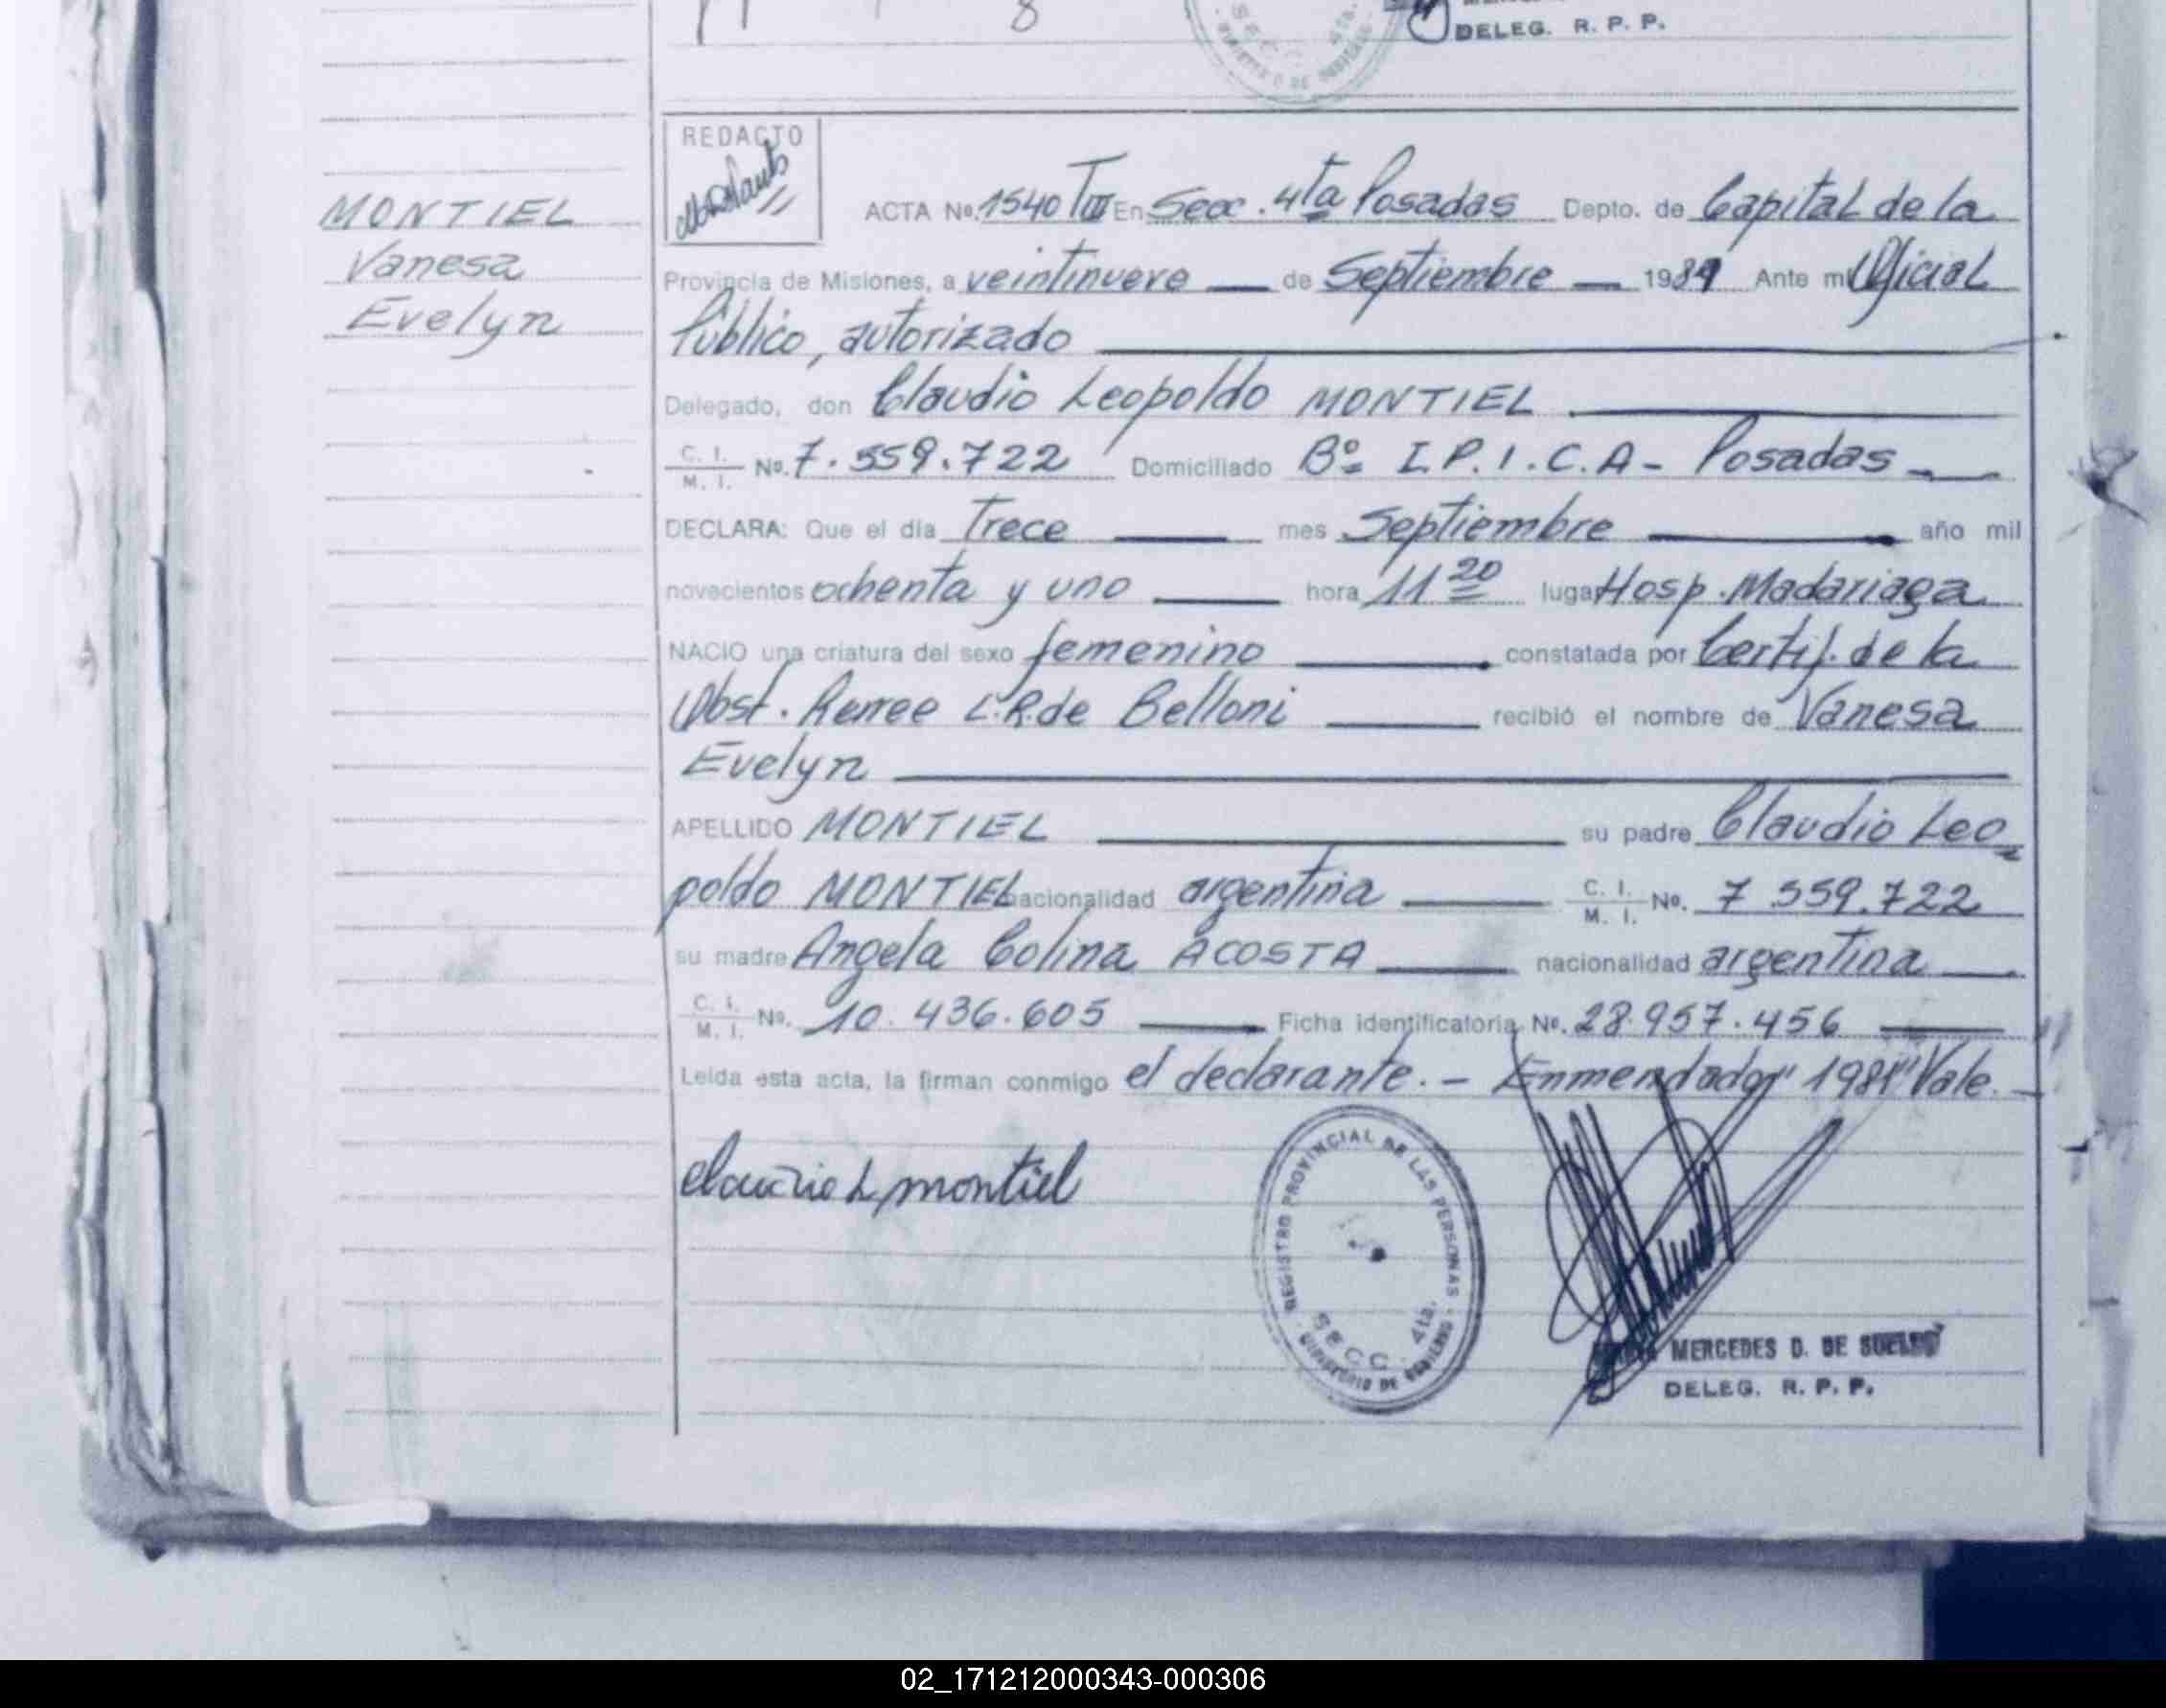 8
DELEG. R. P. P.
SECC. 4ta.
REDACTO
MONTIEL
Vanesa
Evelyn
ACTA No. 1540 TIII En Secc. 4ta Posadas Depto. de Capital de la
Provincia de Misiones, a veintinueve de Septiembre 1981 Ante mi Oficial
Público, autorizado
Delegado, don Claudio Leopoldo MONTIEL
C. I. / M. I. No. 7.559.722 Domiciliado Bº I.P.I.C.A- Posadas
DECLARA: Que el día Trece mes Septiembre año mil
novecientos ochenta y uno hora 11 20 lugar Hosp. Madariaga
NACIO una criatura del sexo femenino constatada por Certif. de la
Obst. Renee L.R. de Belloni recibió el nombre de Vanesa
Evelyn
APELLIDO MONTIEL su padre Claudio Leo
poldo MONTIEL nacionalidad argentina C. I. / M. I. No. 7 559.722
su madre Angela Colina ACOSTA nacionalidad argentina
C. I. / M. I. No. 10.436.605 Ficha identificatoria No. 28.957.456
Leida esta acta, la firman conmigo el declarante.- Enmendado: "1981" Vale.-
Claudio L montiel
REGISTRO PROVINCIAL DE LAS PERSONAS
SECC. 4ta.
MINISTERIO DE GOBIERNO
MERCEDES D. DE
DELEG. R. P. P.
02_171212000343-000306